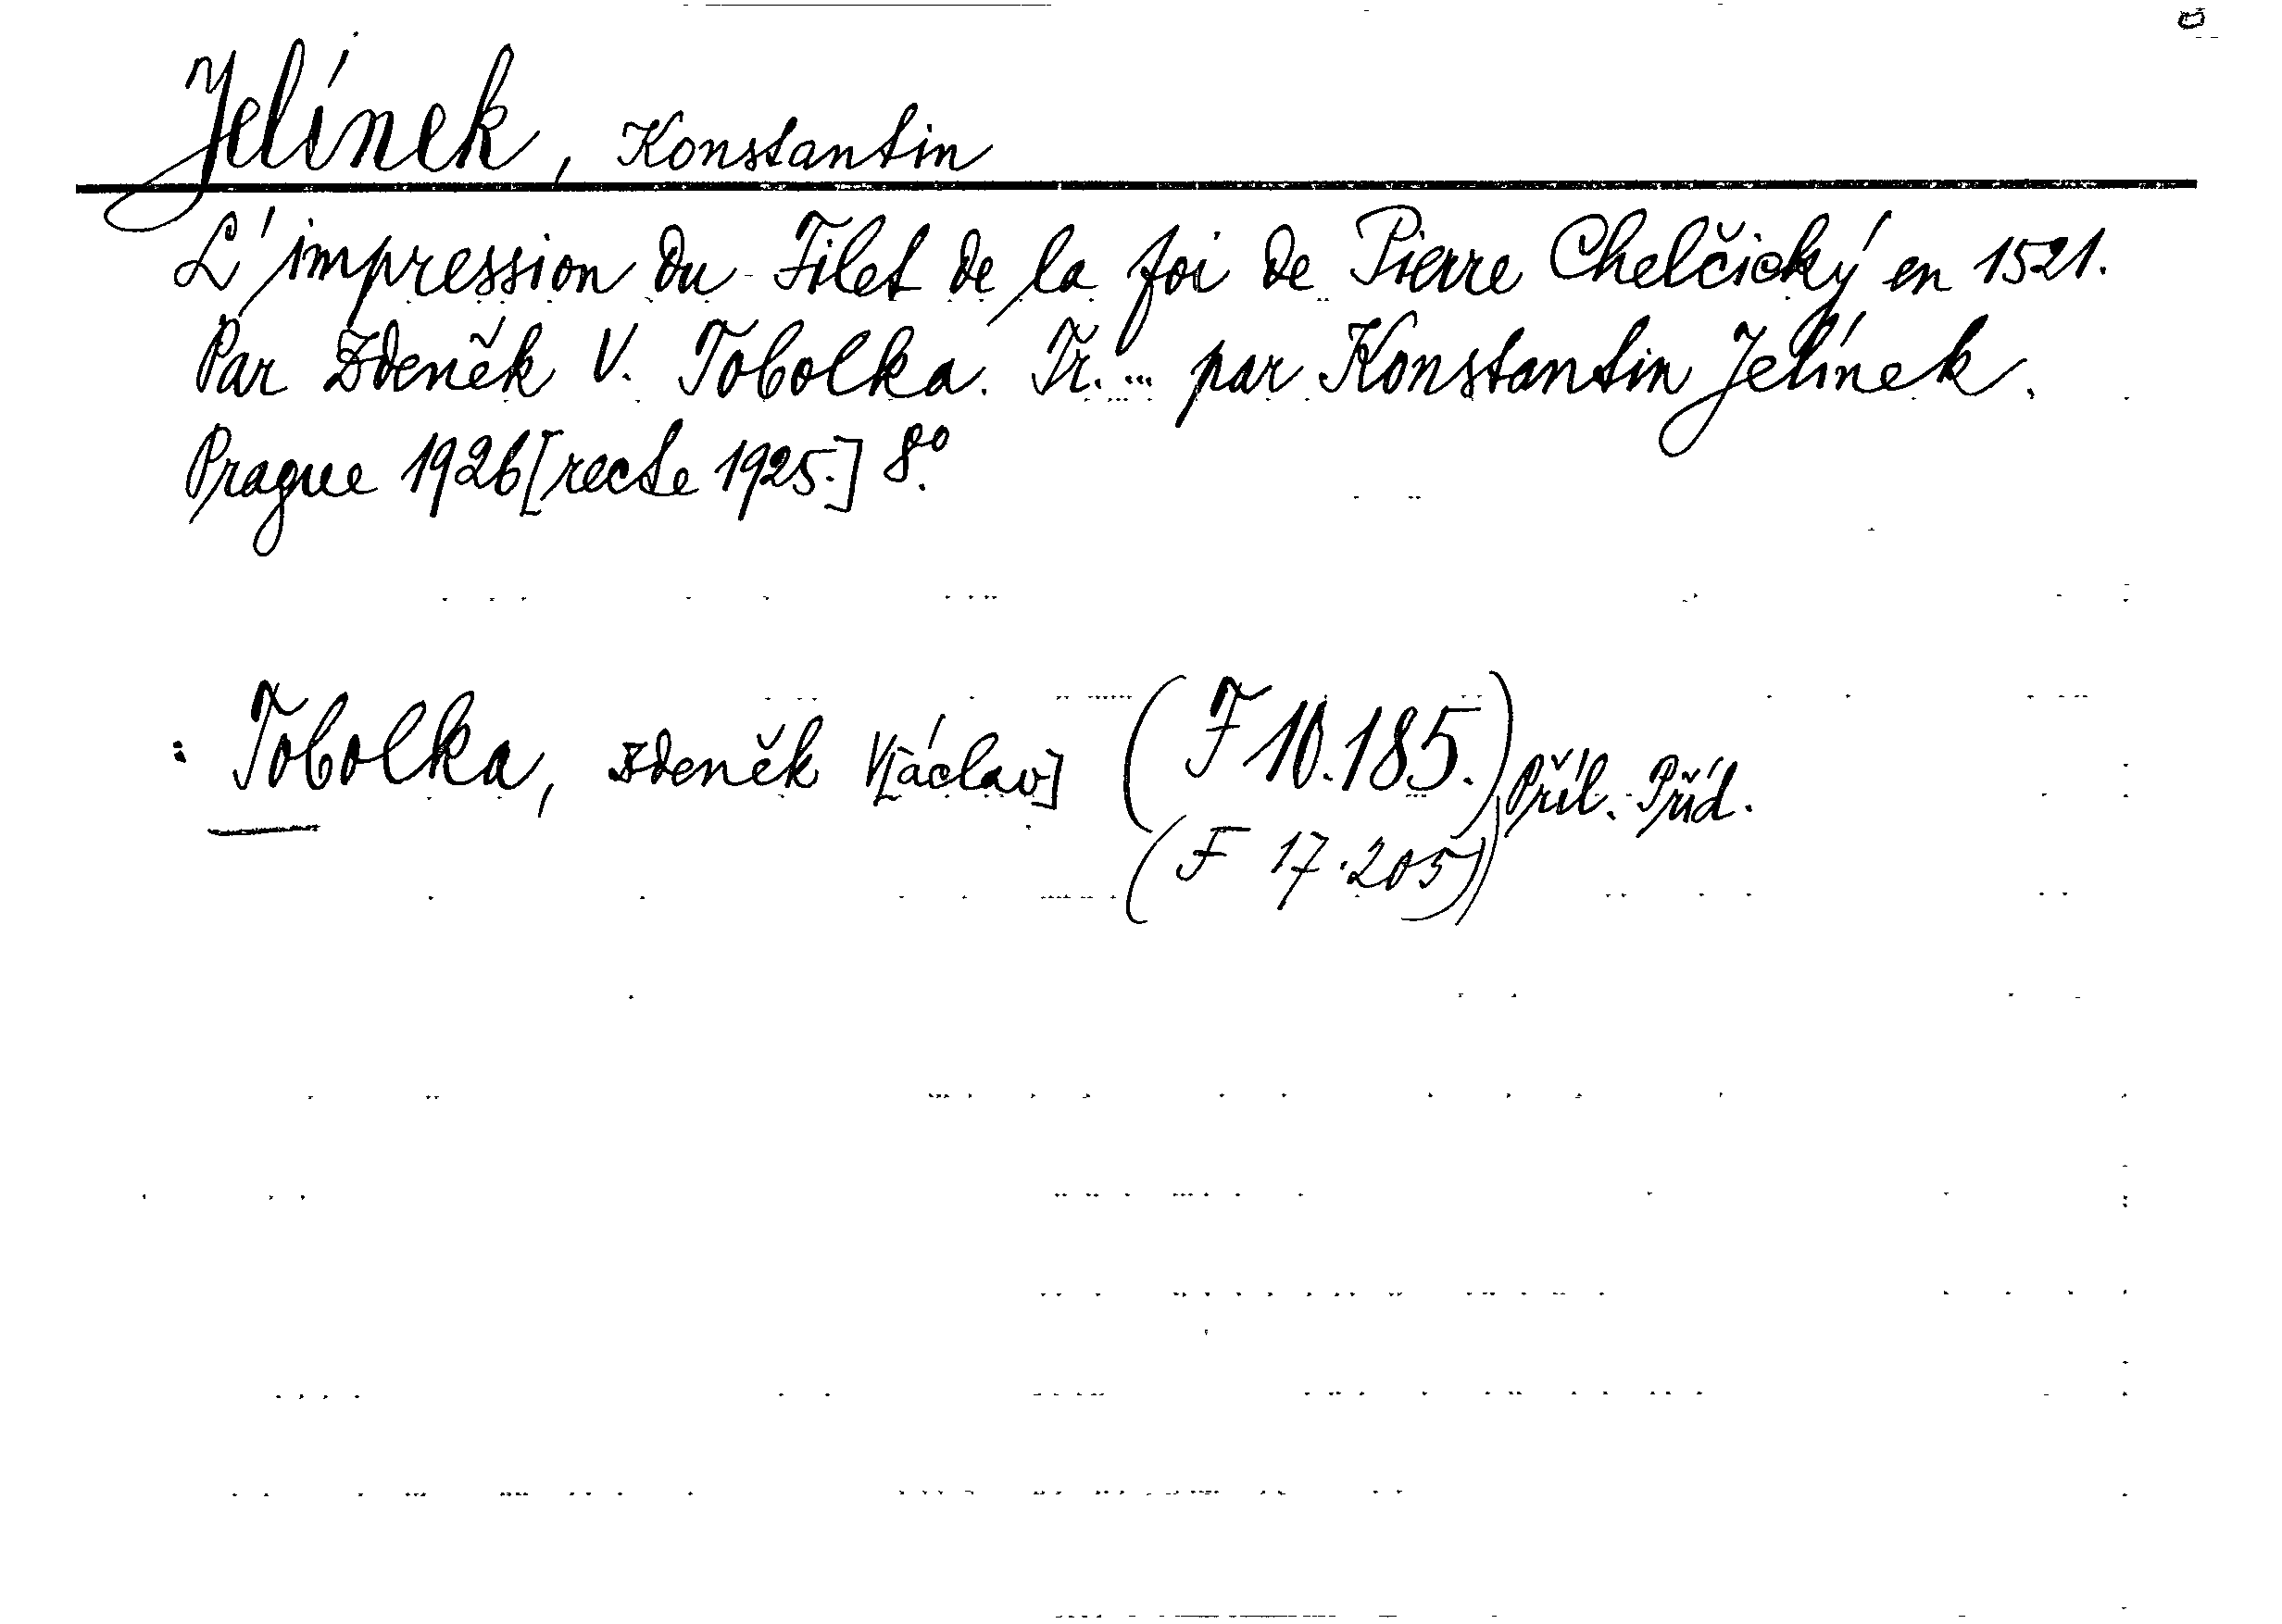 Jelínek, Konstantin
L'impression du Filet de la foi de Pierre Chelčický en 1521.
Par Zdeněk V. Tobolka. Tr. ... par Konstantin Jelínek.
Prague 1926 [recte 1925.] 8°.
: Tobolka, Zdeněk V[áclav] (F 10.185.) Příl. Příd.
(F 17.205)